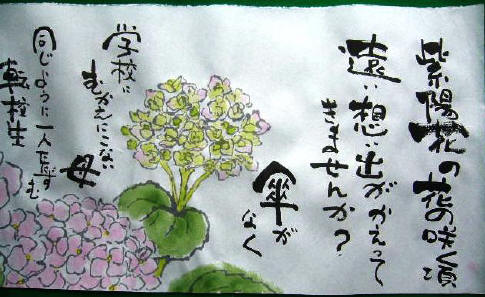 紫陽花の花の咲く頃
遠い想い出がかえって
きませんか?
傘が
なく
学校に
むかえにこない
母
同じように一人佇む
転校生